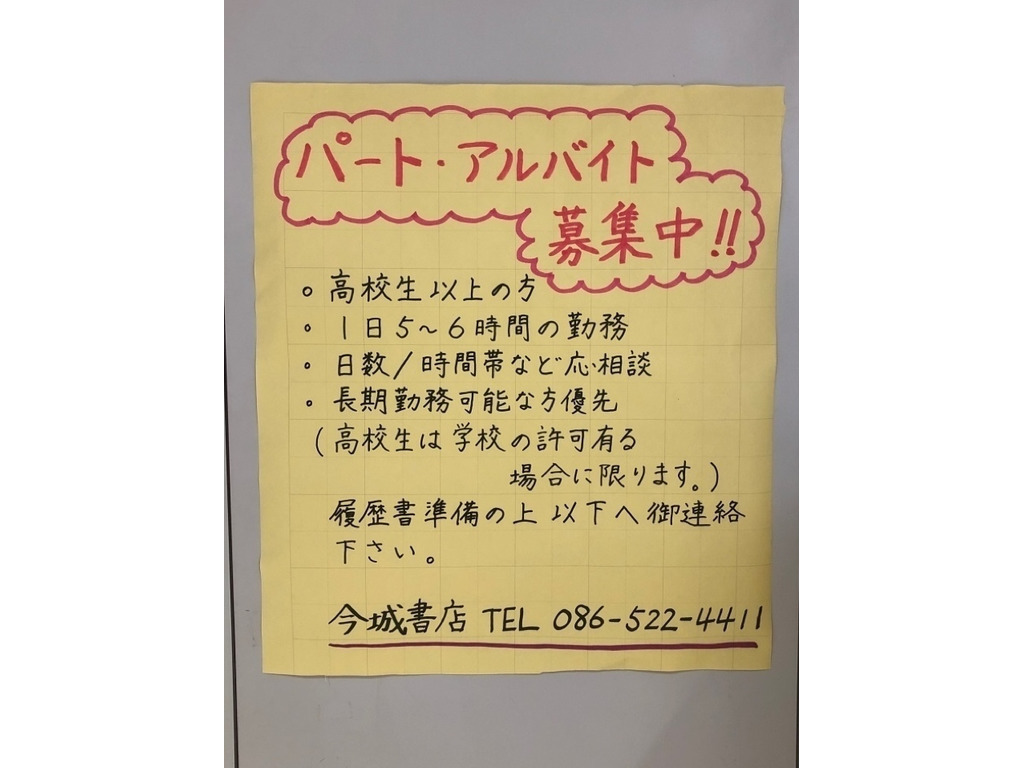 パート・アルバイト
募集中!!
。高校生以上の方
・1日5～6時間の勤務
・日数/時間帯など応相談
・長期勤務可能な方優先
(高校生は学校の許可有る
場合に限ります。)
履歴書準備の上以下へ御連絡
下さい。
今城書店 TEL 086-522-4411